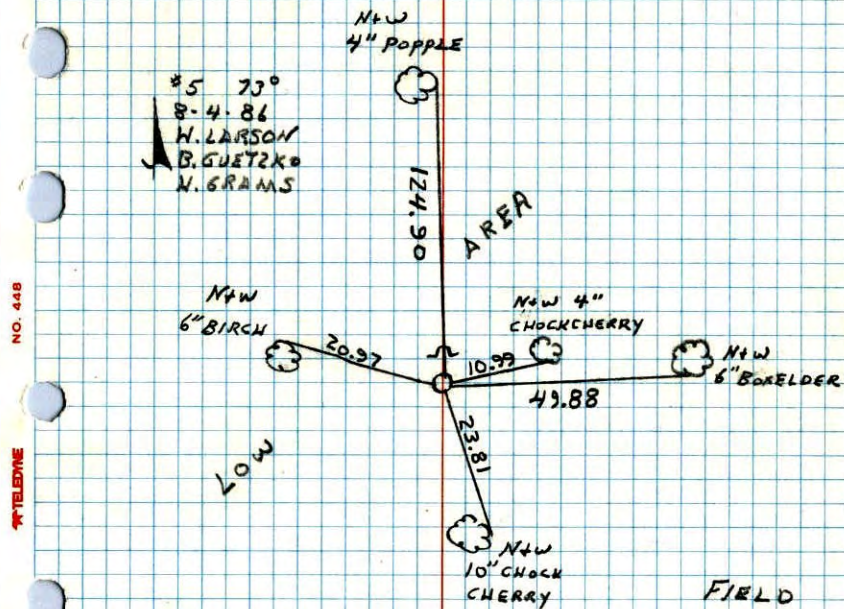 N+W
4" POPPLE
#5 73°
8-4-86
W. LARSON
B. GUETZKO
W. GRAMS
124.90
AREA
N+W
6" BIRCH
20.97
N+W 4"
CHOCKCHERRY
10.99
N+W
6" BOXELDER
49.88
23.81
LOW
N+W
10" CHOCK
CHERRY
FIELD
NO. 448
TELEDYNE